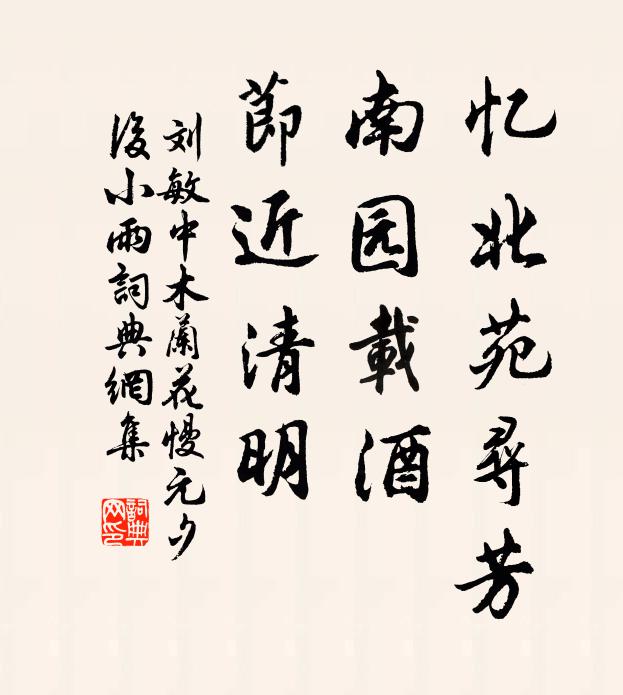 忆北苑尋芳
南园載酒
節近清明
刘敏中木蘭花慢元夕
後小雨詞典網集
詞典
网印